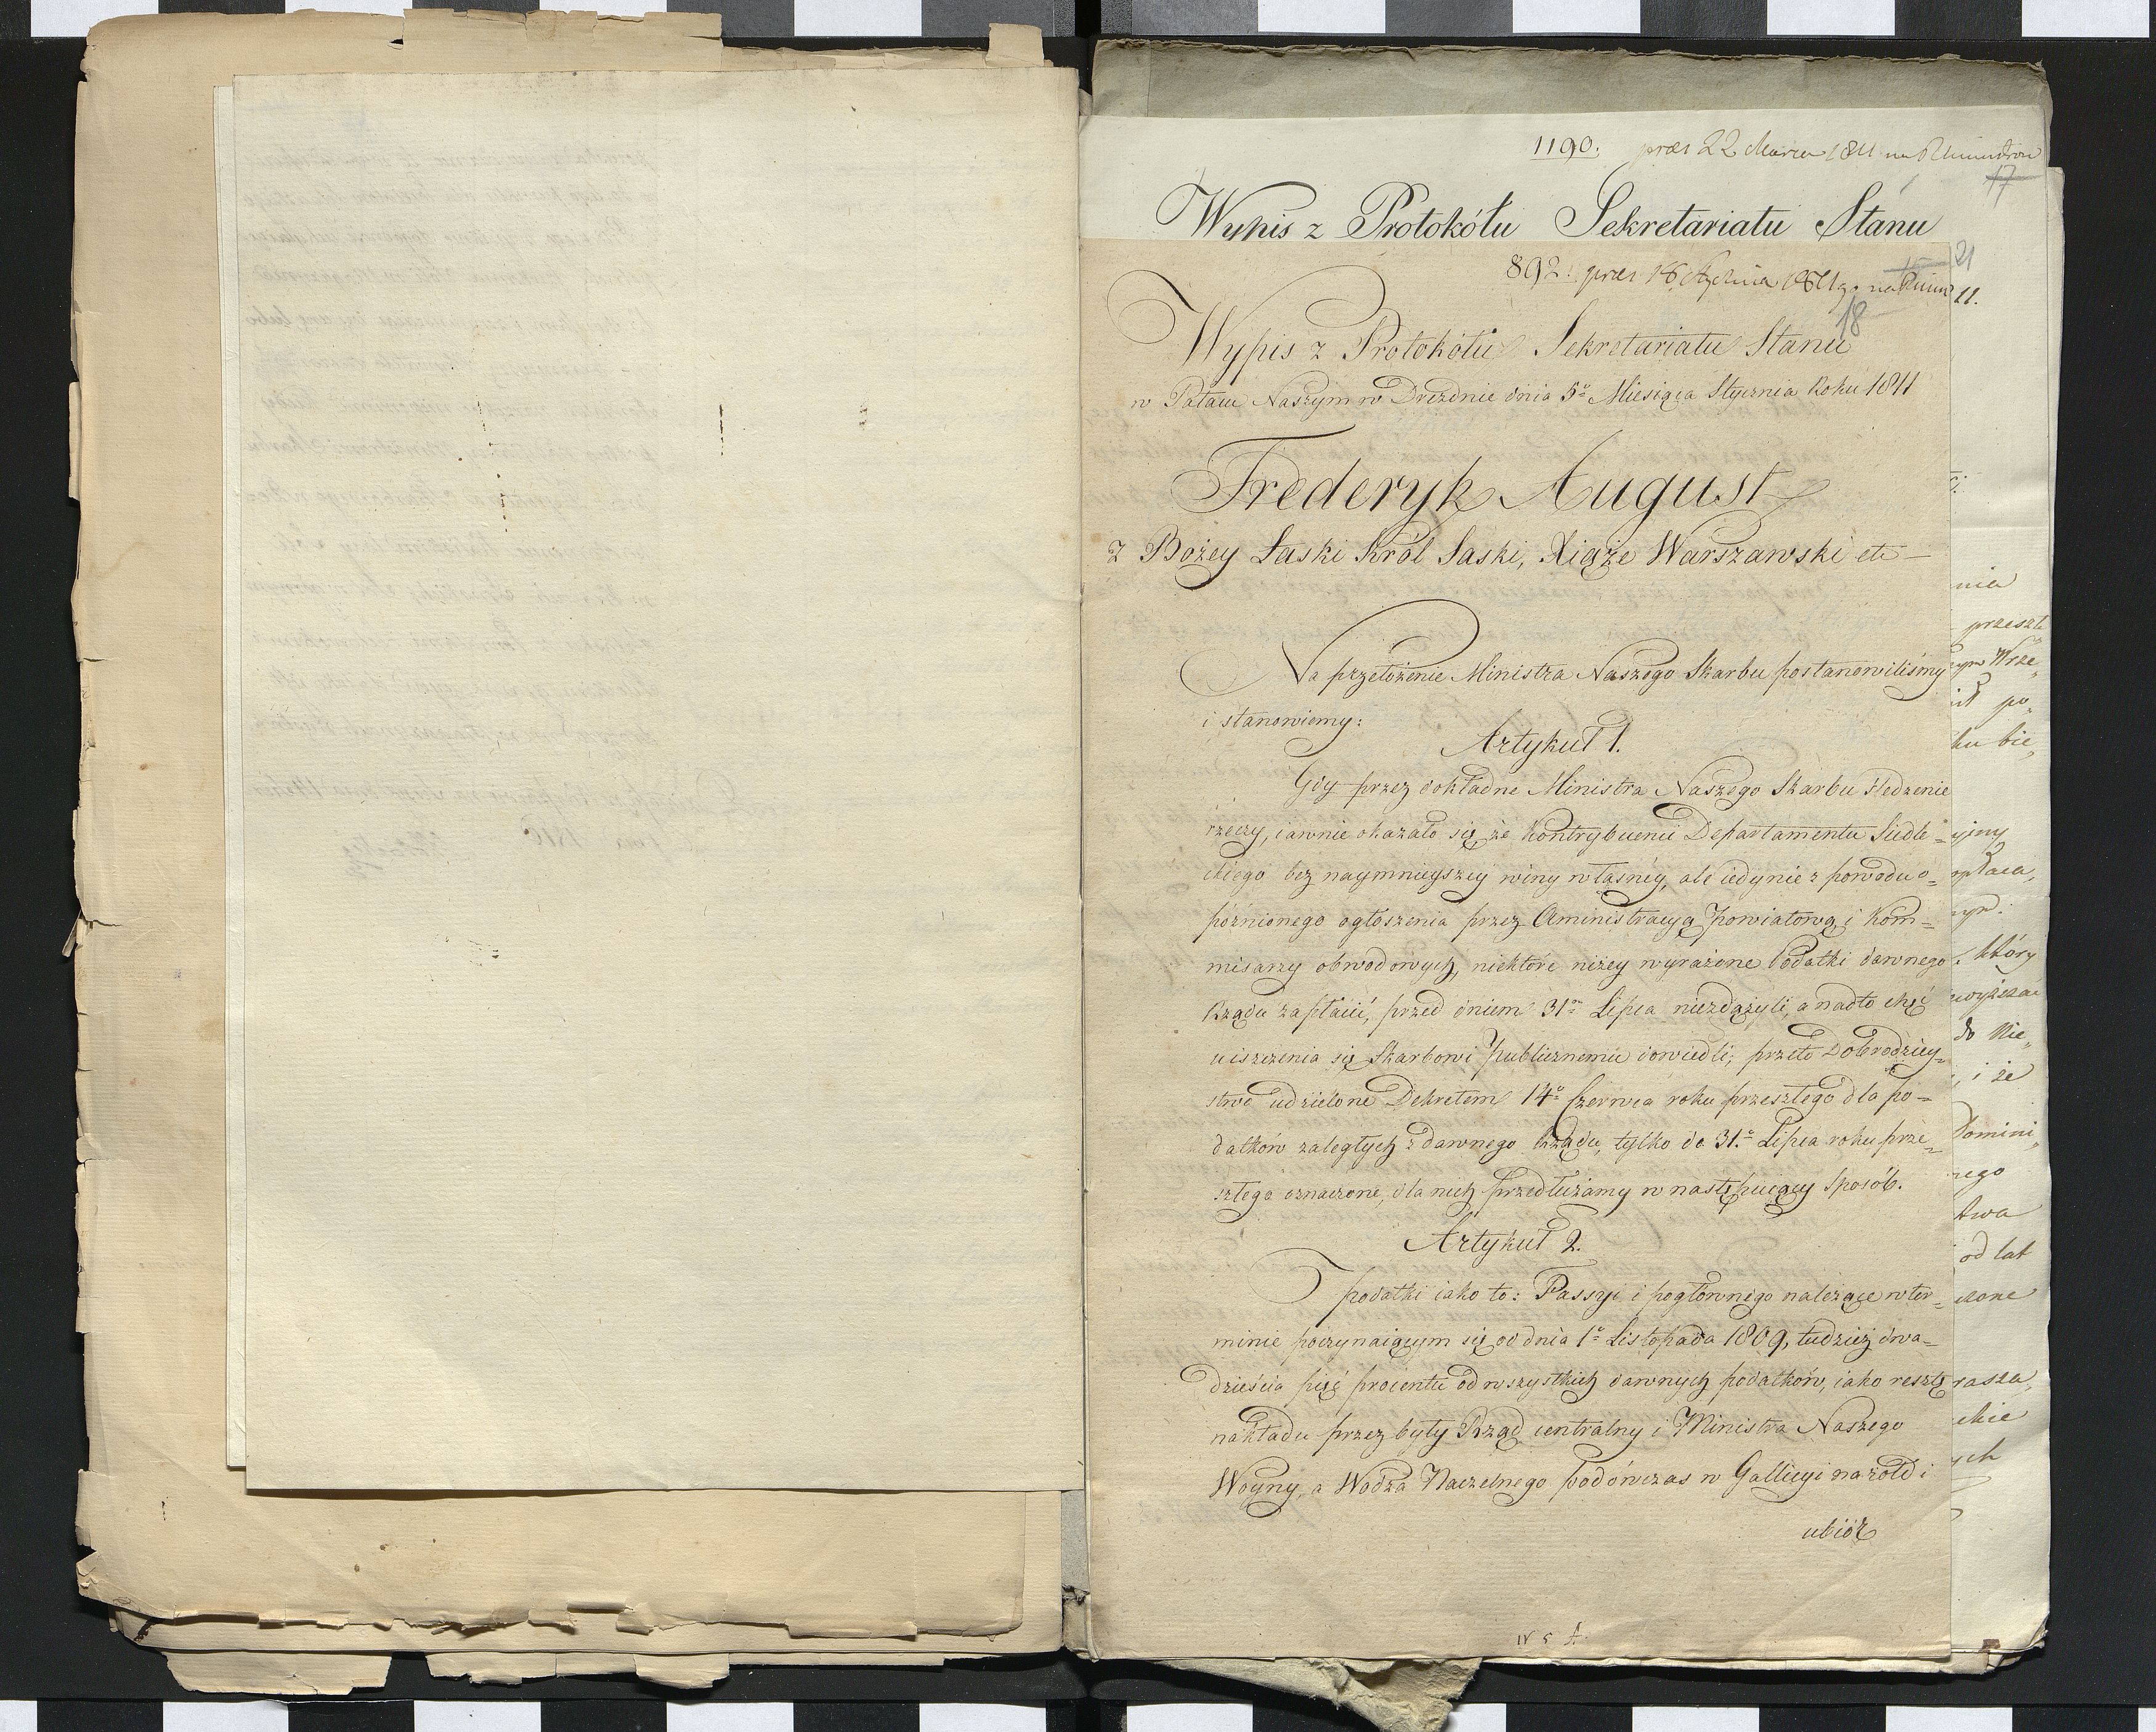 1190. præs 22 Marca 1811 na
17
Wypis z Protokółu Sekretariatu Stanu
21
892. præs 18 Stycznia 1811go na
11.
18
Wypis z Protokółu Sekretariatu Stanu
w Pałacu Naszym w Dreznie dnia 5o Miesiąca Stycznia Roku 1811
Frederyk August
z Bożey Łaski Król Saski, Xiąże Warszawski etc
Na przełożenie Ministra Naszego Skarbu postanowiliśmy
i stanowiemy:
Artykuł 1.
Gdy przez dokładne Ministra Naszego Skarbu śledzenie
rzeczy, iawnie okazało się że Kontrybuenci Departamentu Siedle=
ckiego bez naymnieyszey winy własney, ale iedynie z powodu o=
póznionego ogłoszenia przez Aministracyą Powiatową i Kom=
misarzy obwodowych, niektóre niżey wyrażone Podatki dawnego
Rządu zapłacić, przed dniem 31o Lipca niezdążyli, a nadto chęć
uiszczenia się Skarbowi Publicznemu dowiedli; przeto Dobrodziey=
stwo udzielone Dekretem 14o Czerwca roku przeszłego dla po=
datków zaległych z dawnego Rządu, tylko do 31.o Lipca roku prze=
szłego oznaczone, dla nich przedłużamy w następuiący sposób.
Artykuł 2.
Podatki iako to: Fassyi i pogłównego należące w ter=
minie poczynaiącym się od dnia 1o Listopada 1809, tudzież dwa=
dzieścia pięć procentu od wszystkich dawnych podatków, iako resztę
nakładu przez były Rząd centralny i Ministra Naszego
Woyny, a Wodza Naczelnego podówczas w Gallicyi na żołd i
ubiór
nia
przeszł
po„
ku bie„
który
do Nie„
, i że
Domini„
nego
twa
od lat
czone
ckie
ych